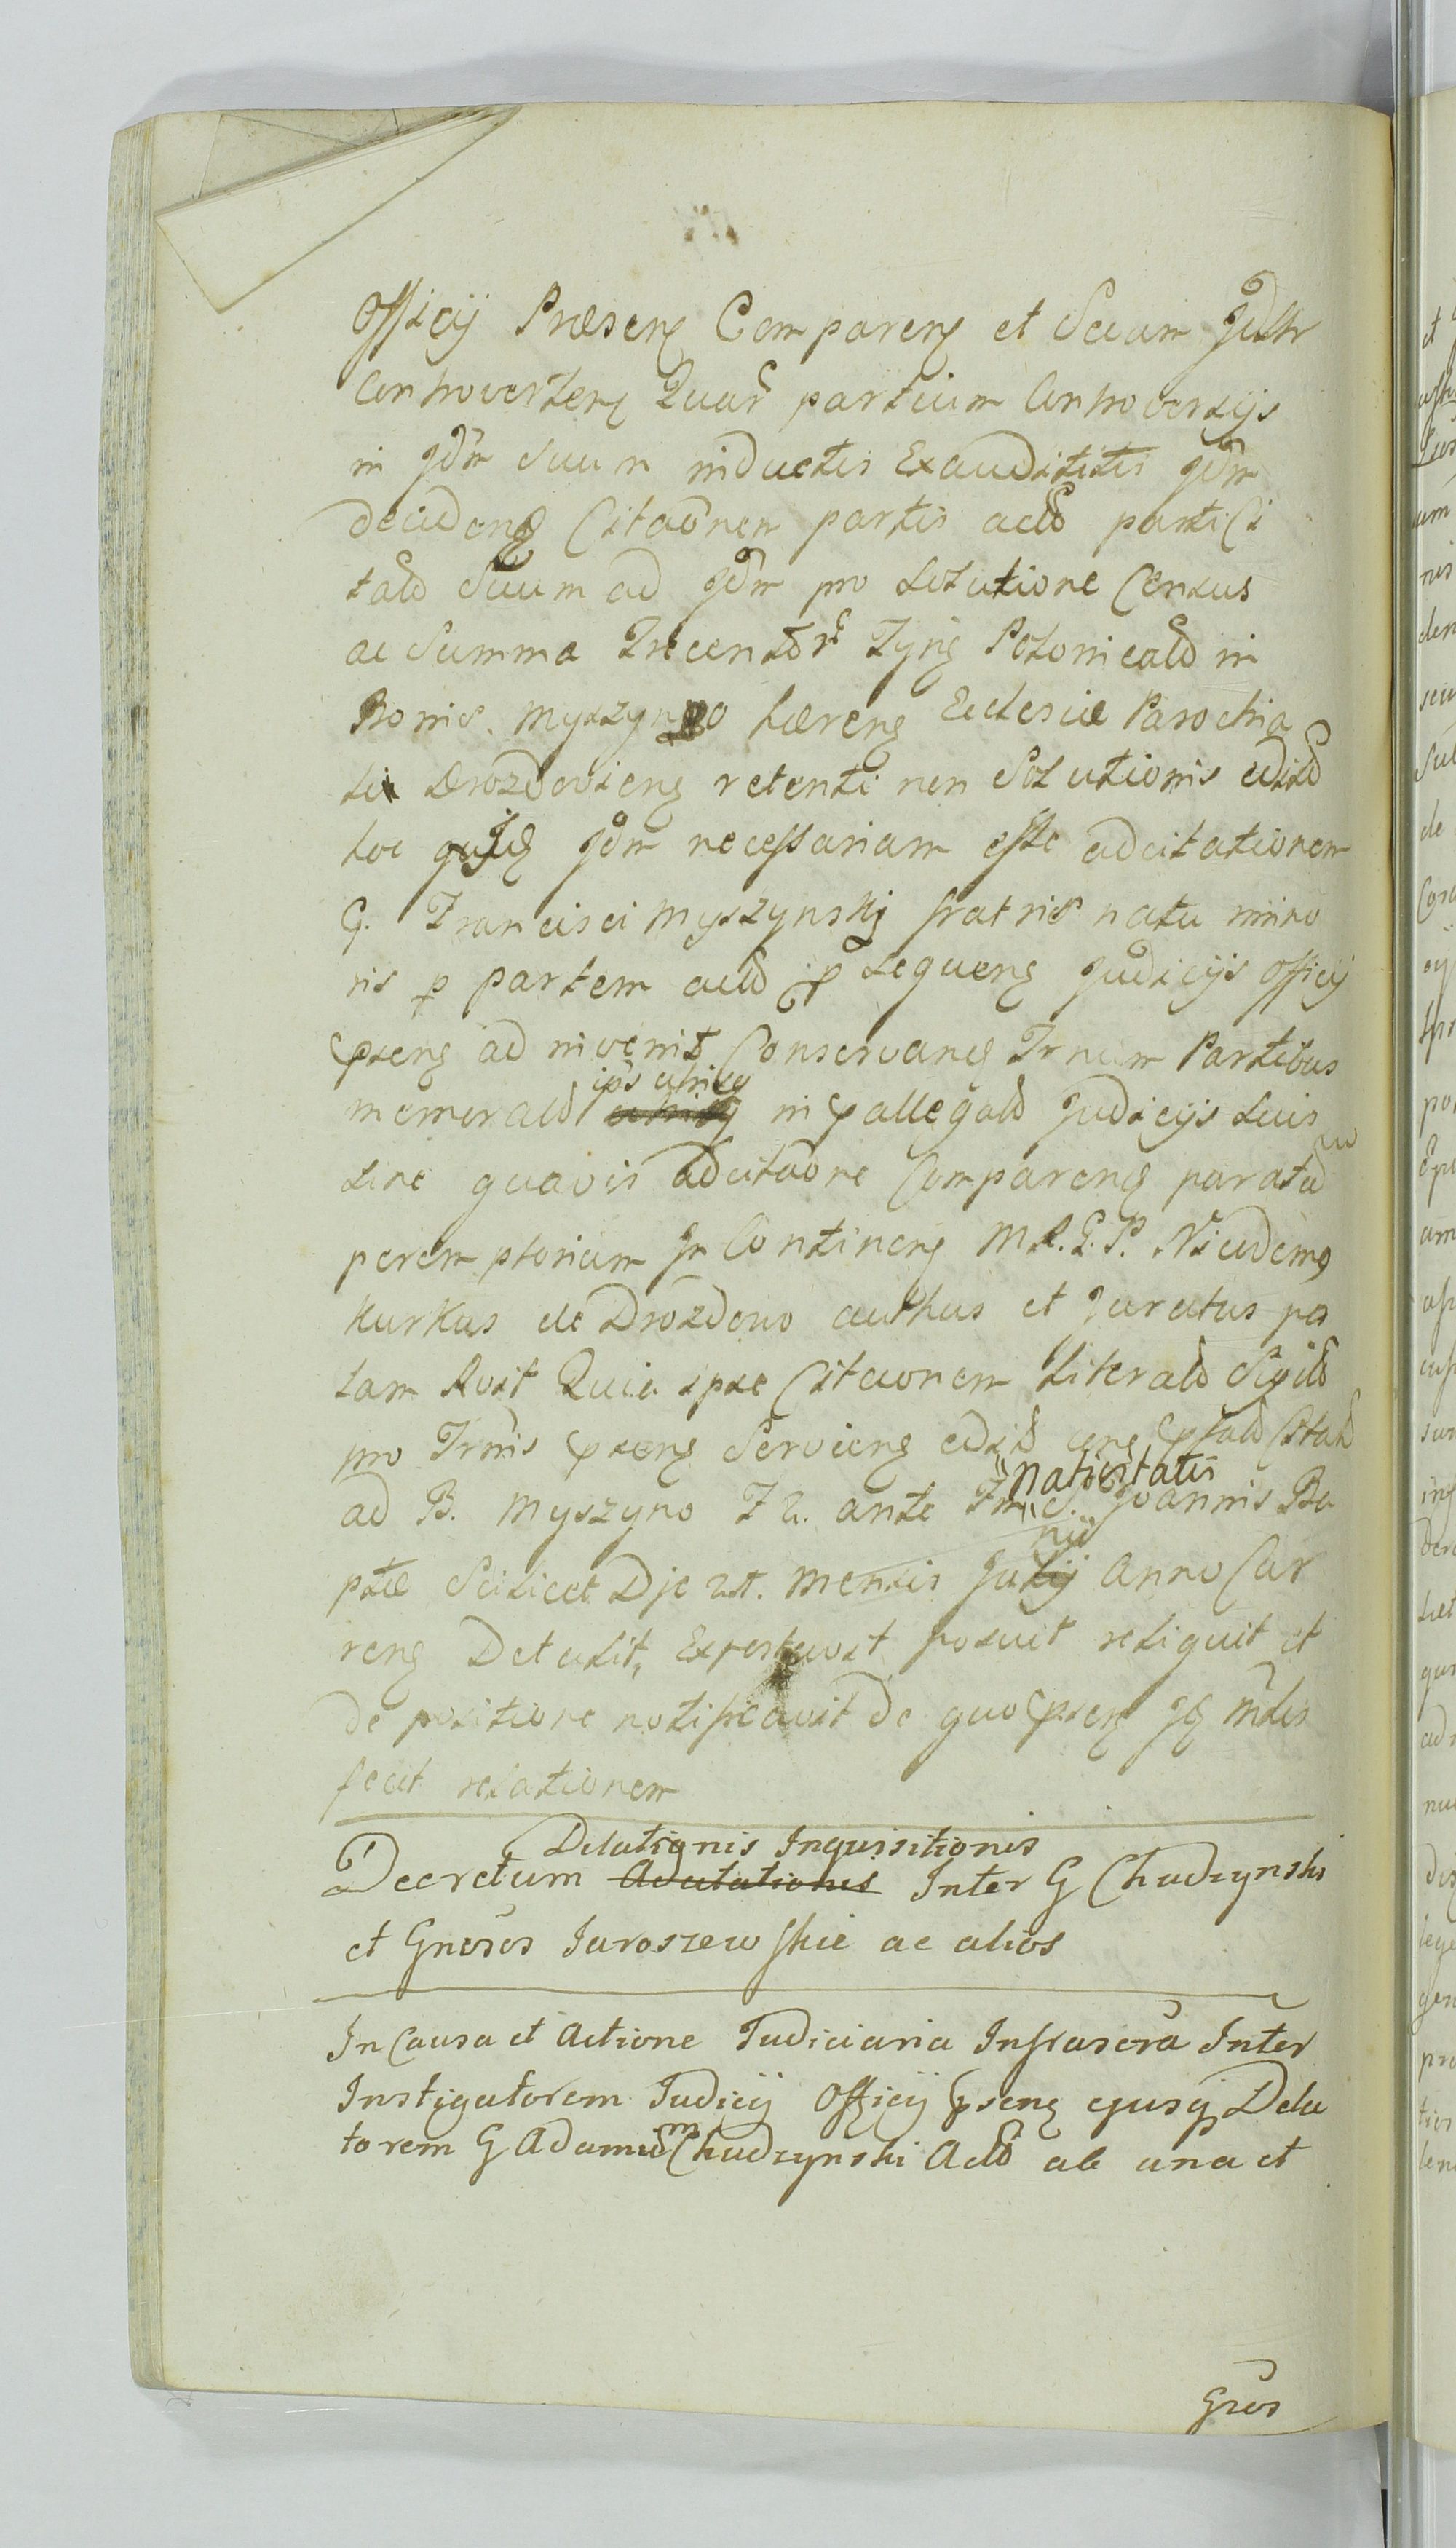 Officij Præsenς Comparenς et Seciam Judtr
Controvertenς Quarͬ partium Controversijs
in Jdm̃ Suum inductis Exauditis Jdm̃
decidenς Citaõnem partis actã parti Ci
tatã Suum ad Jdm̃ pro Solutione Census
ac Summa Trecentorͬ Tynς Polonicalĩ in
Bonis Myszyno hærenς Ecclesiæ Parochia
lis Drozdoviens retenti non Solutionis edită
hoc Jdm̃ necessariam esse adcitationem
G. Francisci Myszynskj fratris natu mino
ris p partem actã p Sequens Judicijs Officij
psens ad invenit Conservans Trnum Partibus
memoratã ips utrisq in pallegatã Judicijs Suis
Sine quavis adcitaõne Comparens paratũ
peremptorium In Continens M.R.G.P. Nicudemς
Kurkus de Drozdowo authus et Juratus pa
lam Rvit Quia ipse Citaonem Literatã Sigilă
pro Trmis psens Serviens edită
ad B. Myszyno F 2. ante Fm S. nativitatis Joannis Ba
ptæ Scilicet Die 21. mensis Julij nij Anno Cur
rens Detulit, Expostavit posuit reliquit et
de positione notificavit de quo psens mdis
fecit relationem
Decretum Adcitationis Dilationis Inquisitionis Inter G Chudzynski
et Gnosos Jaroszewskie ac alios
In Causa et Actione Judiciaria Infrascrã Inter
Instigatorem Judicij Officij psens ejusq Dela
torem G Adamũm Chudzynski Actã ab una et
Gnos